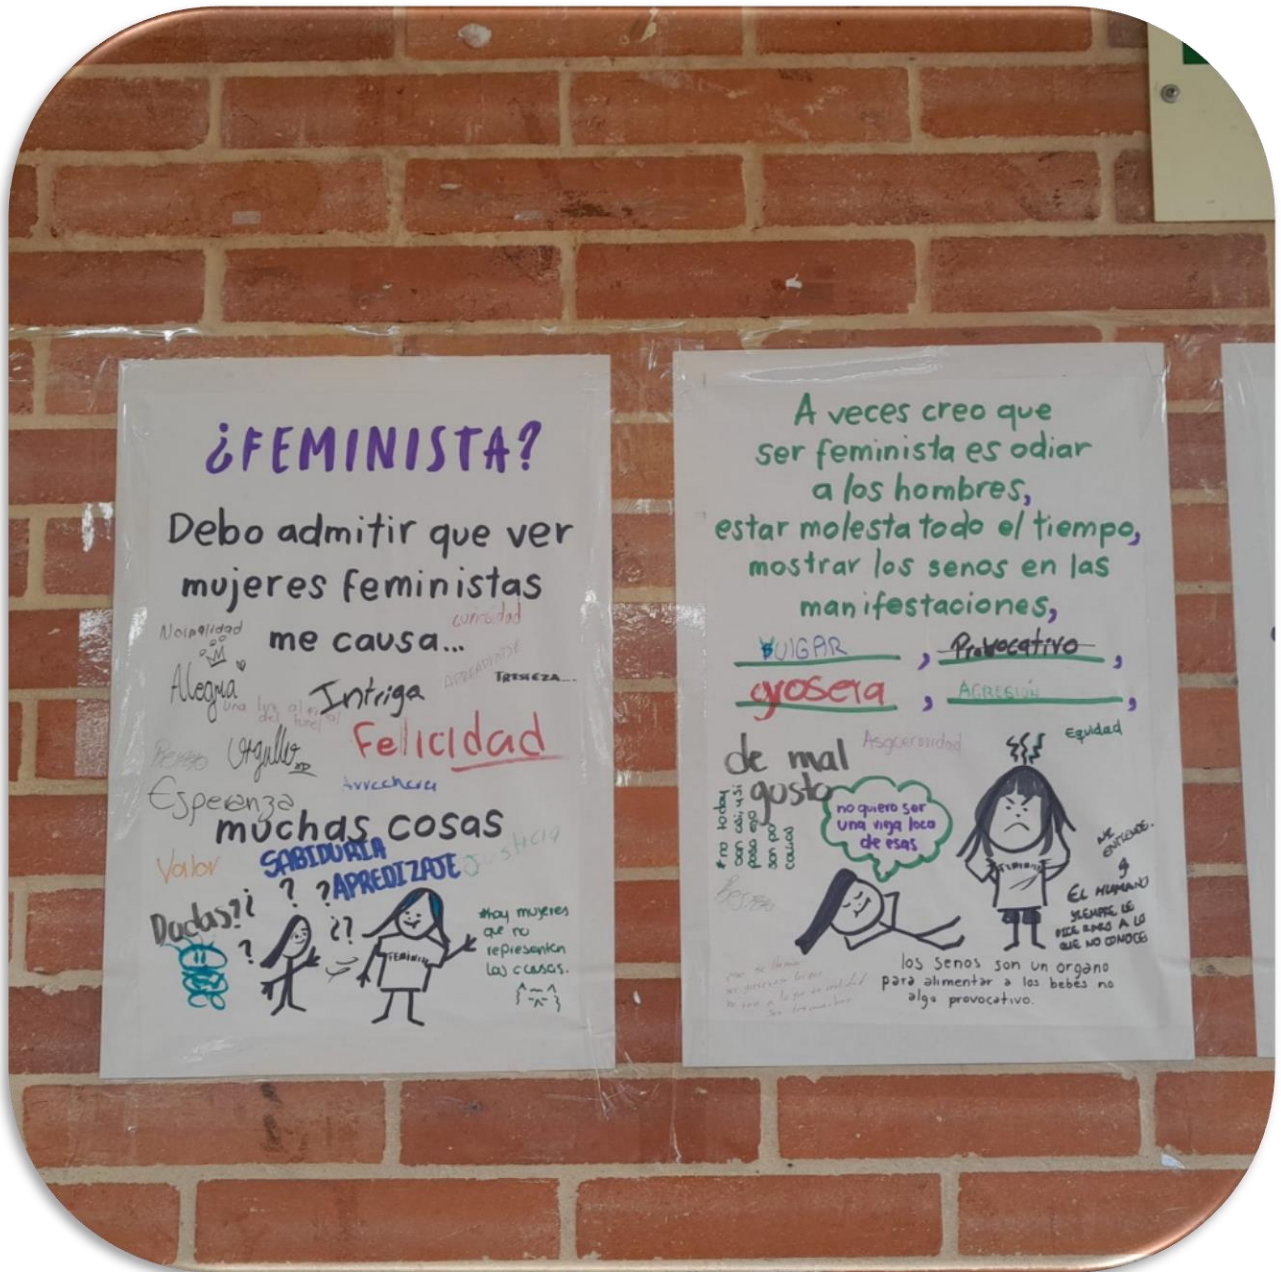 ¿FEMINISTA?
Debo admitir que ver
mujeres feministas
me causa...
Normalidad
curiosidad
Alegria
Intriga
TRISTEZA...
una luz al
del tunel
Orgullo
Felicidad
Esperanza
Arrechera
muchas cosas
Valor
SABIDURIA
APREDIZAJE
Justicia
Dudas??
? ?
¿?
?
FEMINIS
#hay mujeres
que no
representan
las causas.
A veces creo que
ser feminista es odiar
a los hombres,
estar molesta todo el tiempo,
mostrar los senos en las
manifestaciones,
VULGAR, Provocativo,
grosera, AGRESIÓN,
de mal
gusto
Asquerosidad
Equidad
#no today
son asi, y si
pasa eso
son po
causas
no quiero ser
una vieja loca
de esas
FEMINIS
NO
ENTIENDE.
EL HUMANO
SIEMPRE LE
A LO
QUE NO CONOCE
los senos son un organo
para alimentar a los bebés no
algo provocativo.